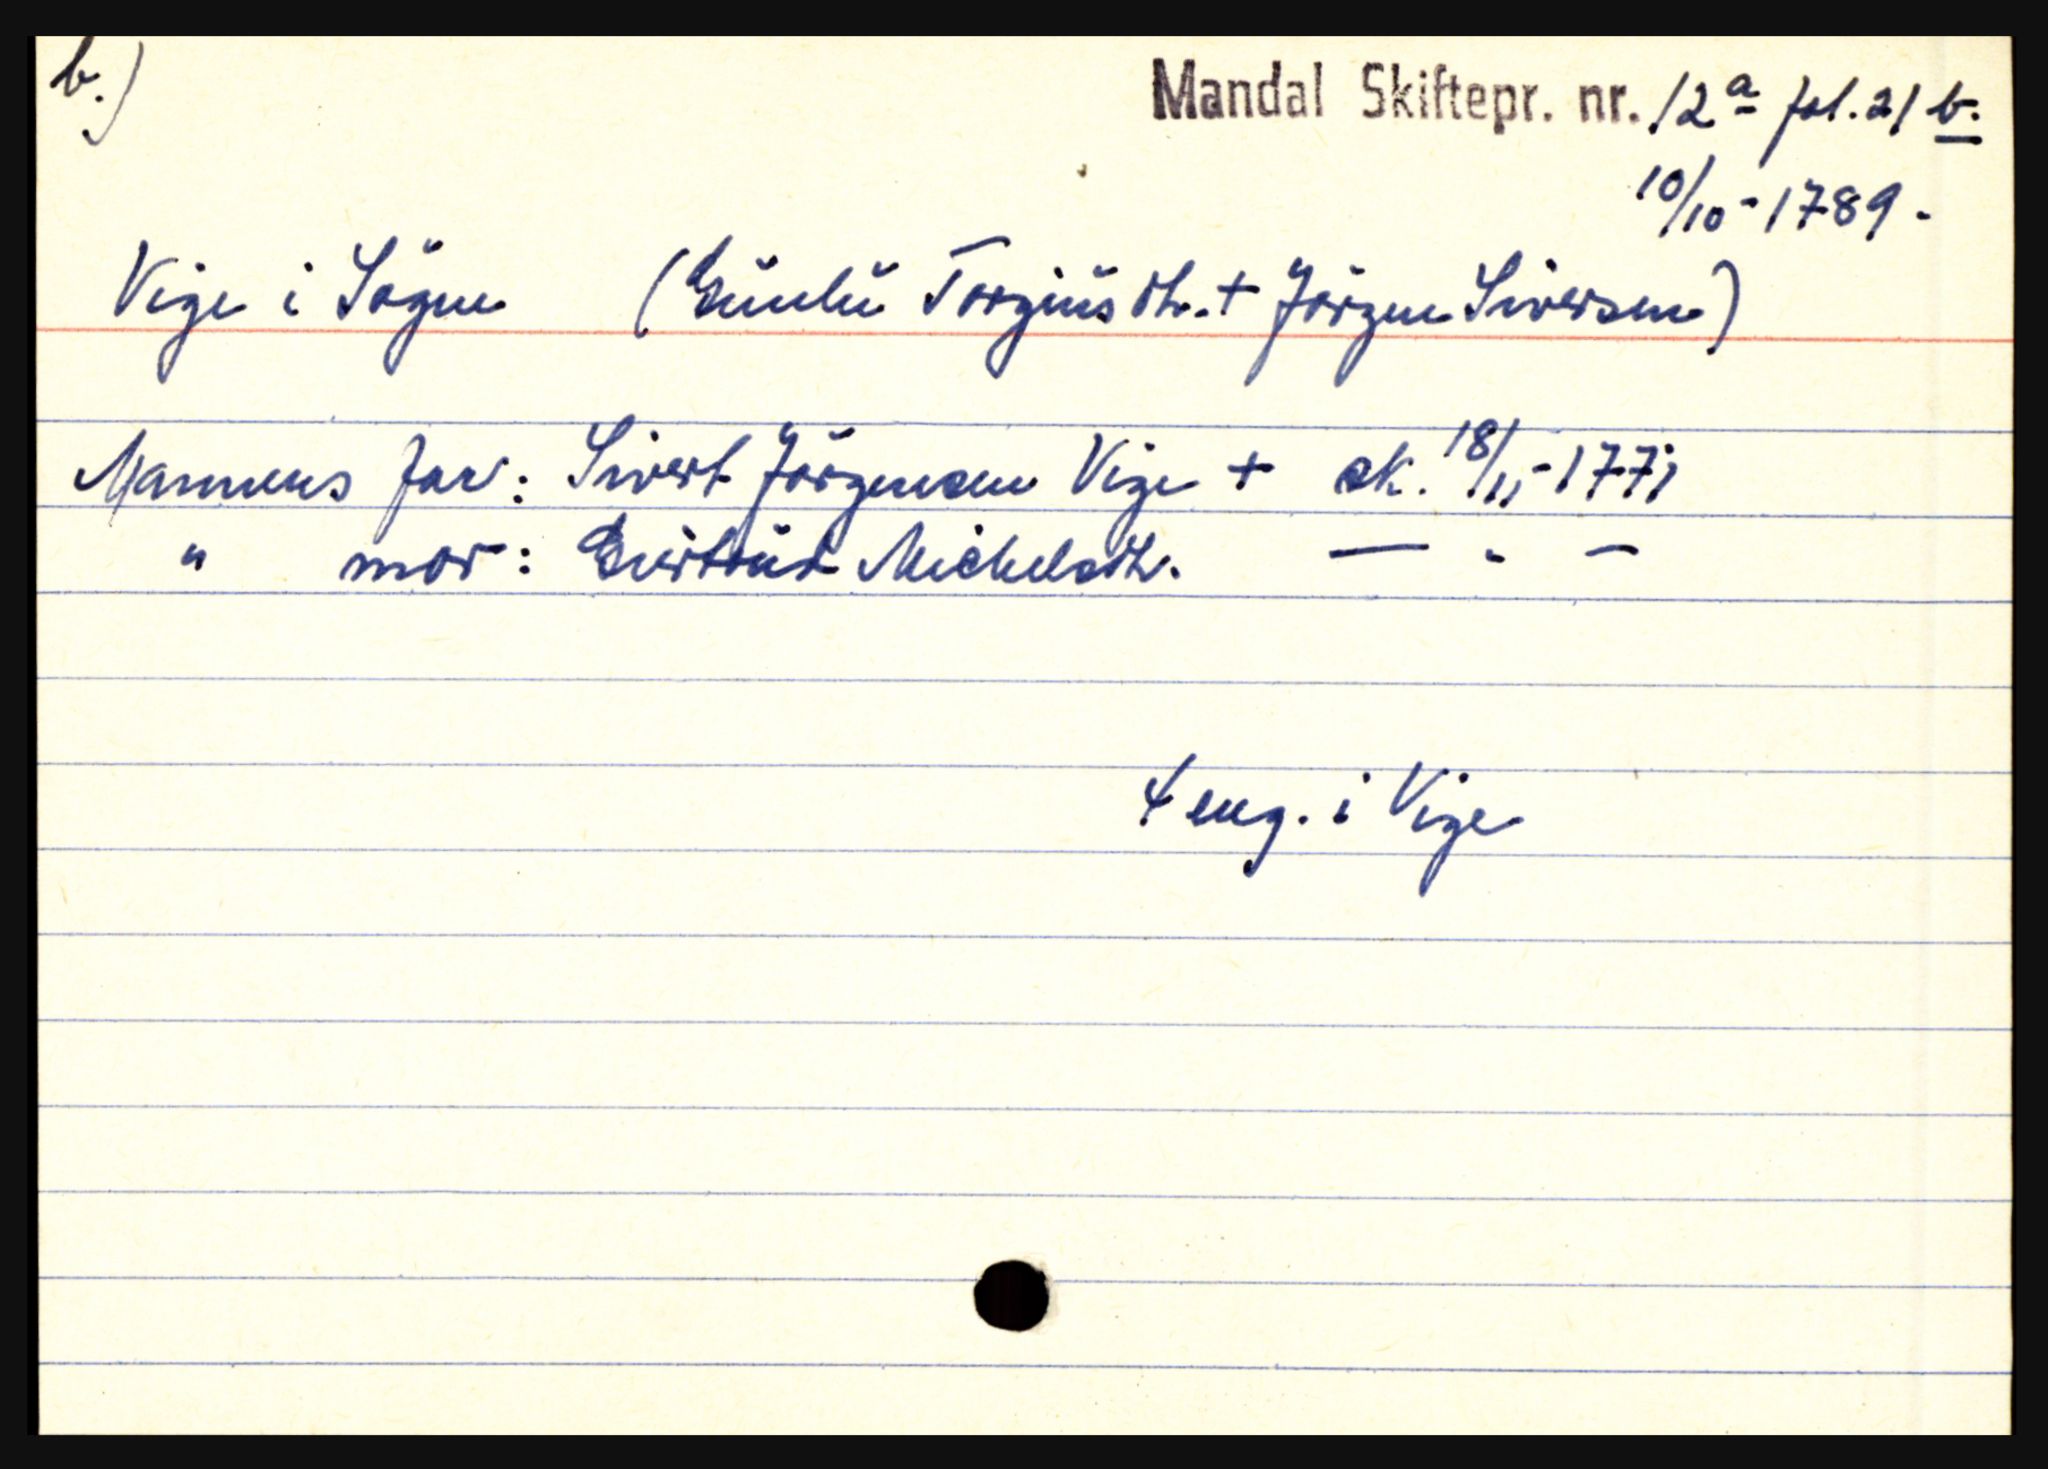 b.)
Mandal Skiftepr. nr. 12a fol. 21 b.
10/10-1789.
Vige i Sögne (Gunlu Torgiusdtr. + Jörgen Siversen)
Mannens far: Sivert Jörgensen Vige + sk. 18/11-1771
" mor: Giertrud Michelsdtr. — " —
4 eng. i Vige